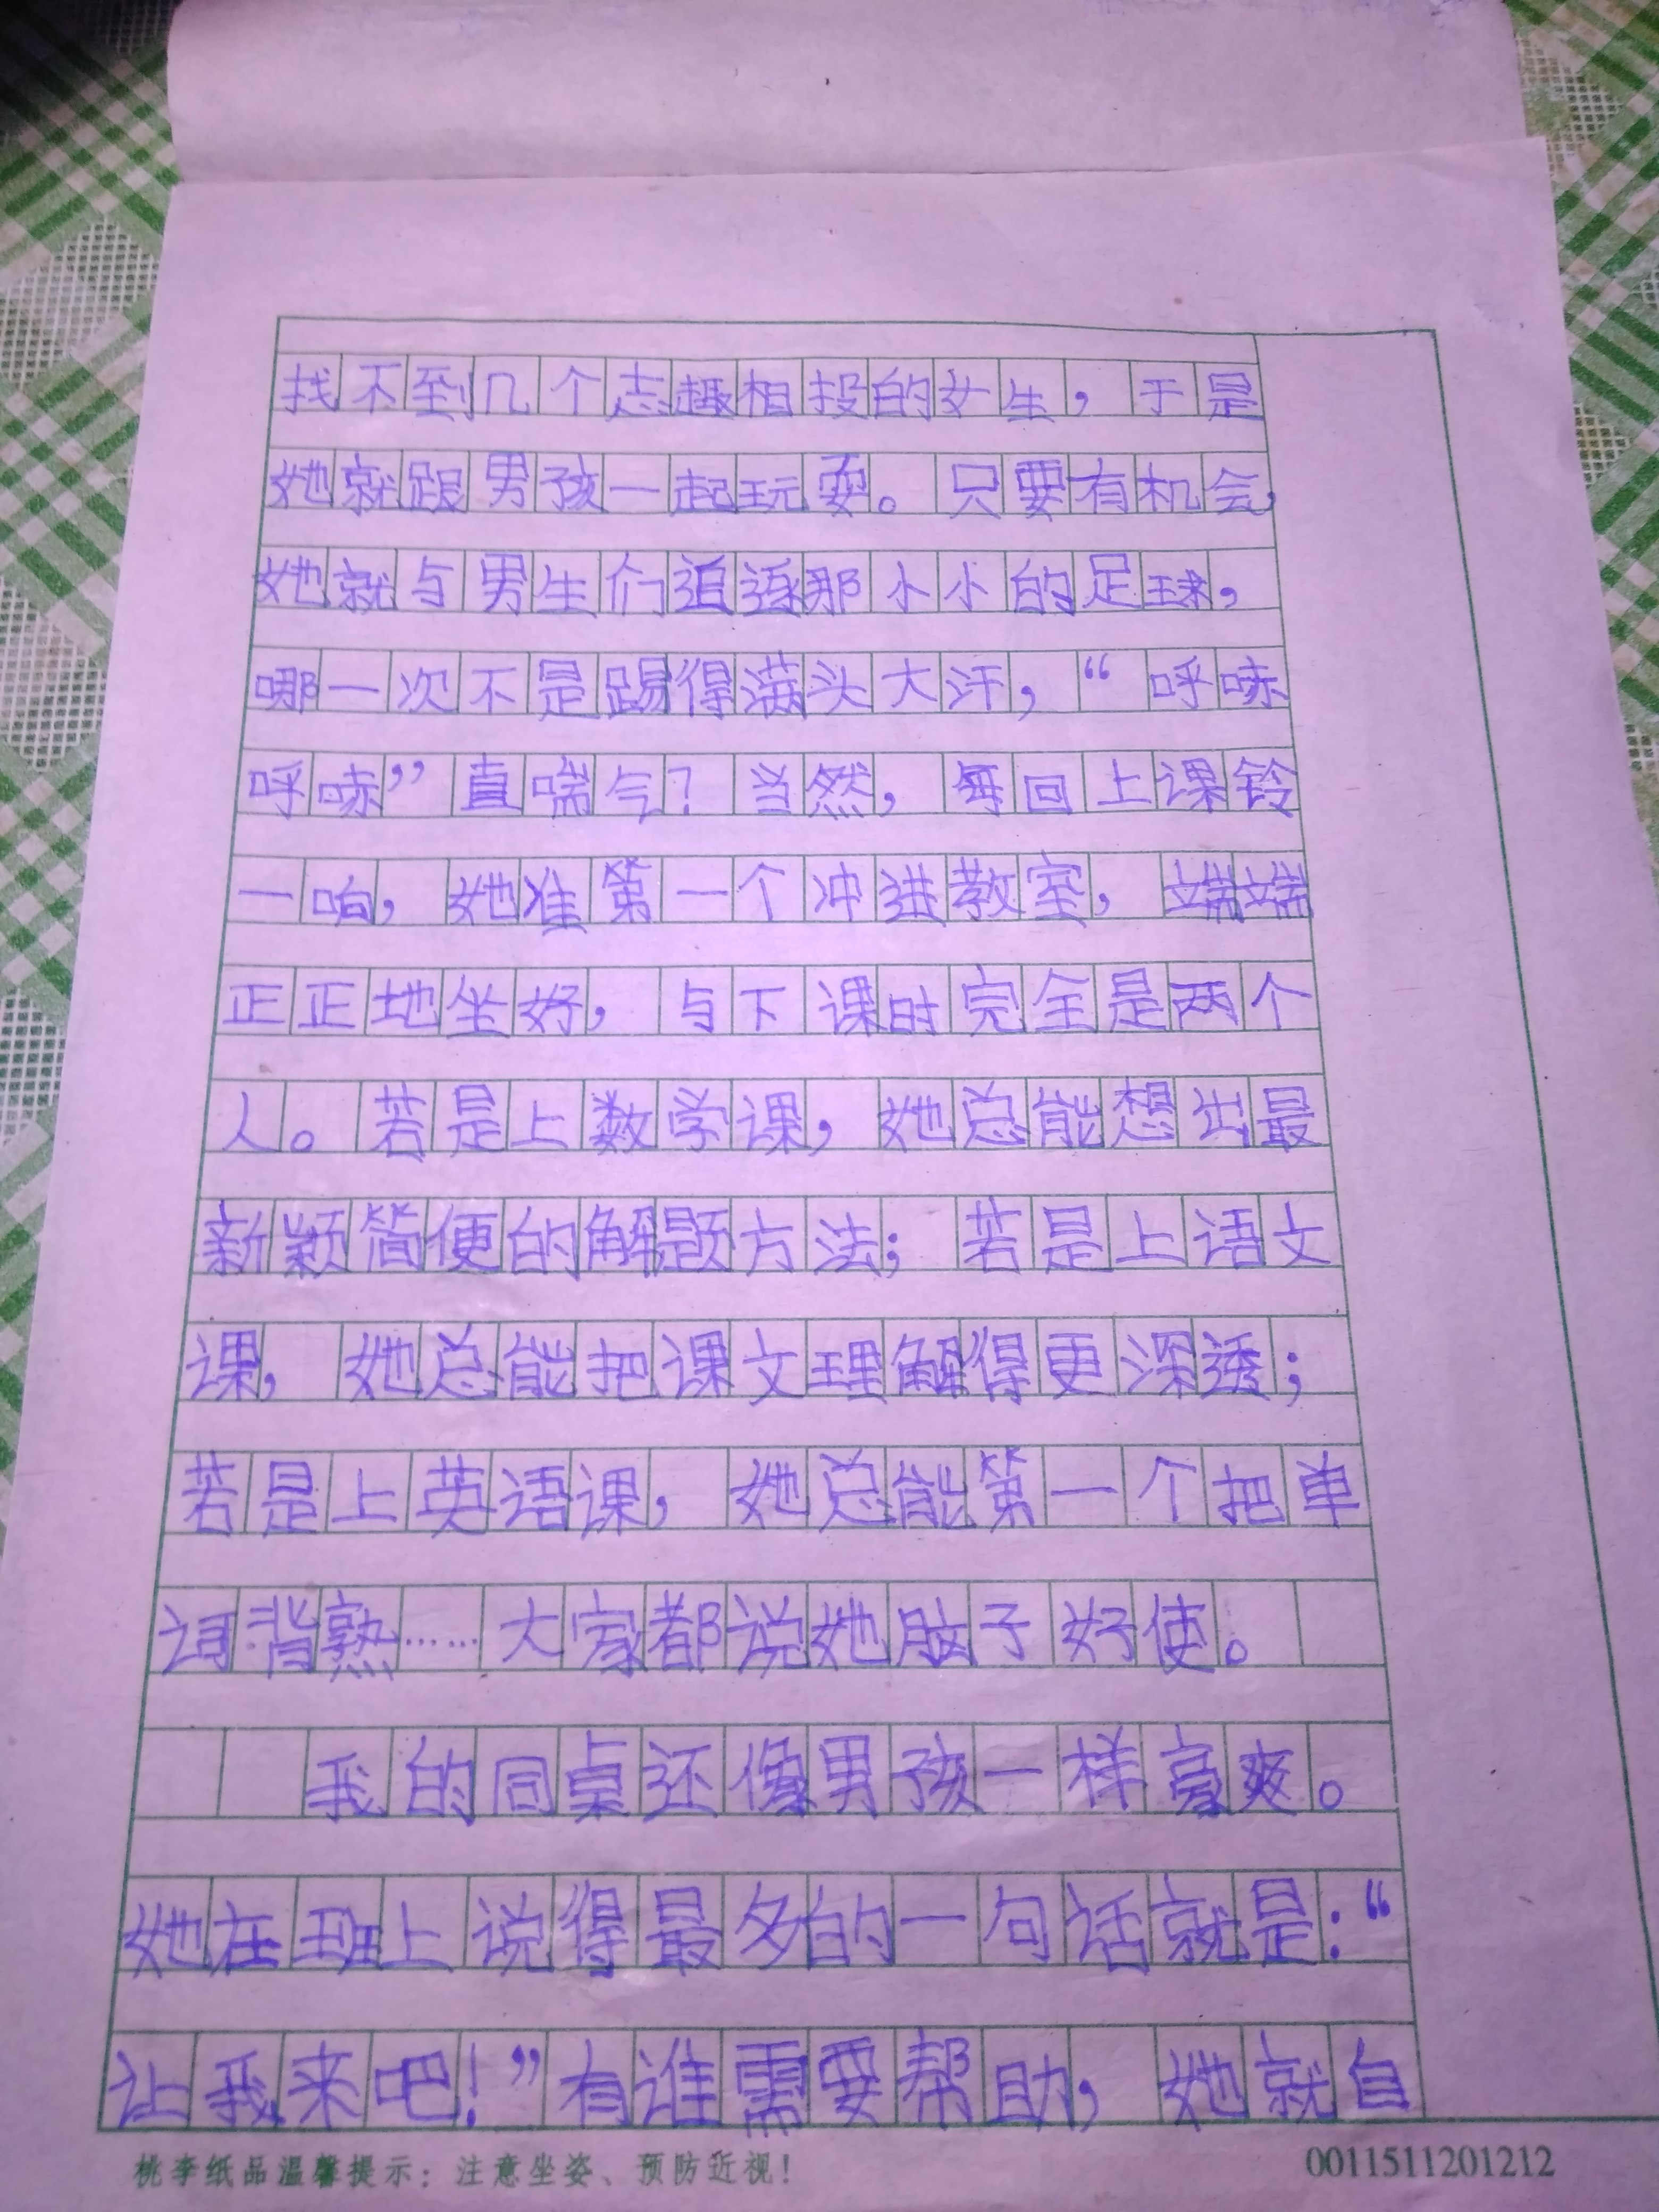 找不到几个志趣相投的女生，于是
她就跟男孩一起玩耍。只要有机会，
她就与男生们追逐那小小的足球，
哪一次不是踢得满头大汗，“呼哧
呼哧”直喘气？当然，每回上课铃
一响，她准第一个冲进教室，端端
正正地坐好，与下课时完全是两个
人。若是上数学课，她总能想出最
新颖简便的解题方法；若是上语文
课，她总能把课文理解得更深透；
若是上英语课，她总能第一个把单
词背熟……大家都说她脑子好使。
我的同桌还像男孩一样豪爽。
她在班上说得最多的一句话就是：“
让我来吧！”有谁需要帮助，她就自
桃李纸品温馨提示：注意坐姿、预防近视！
0011511201212